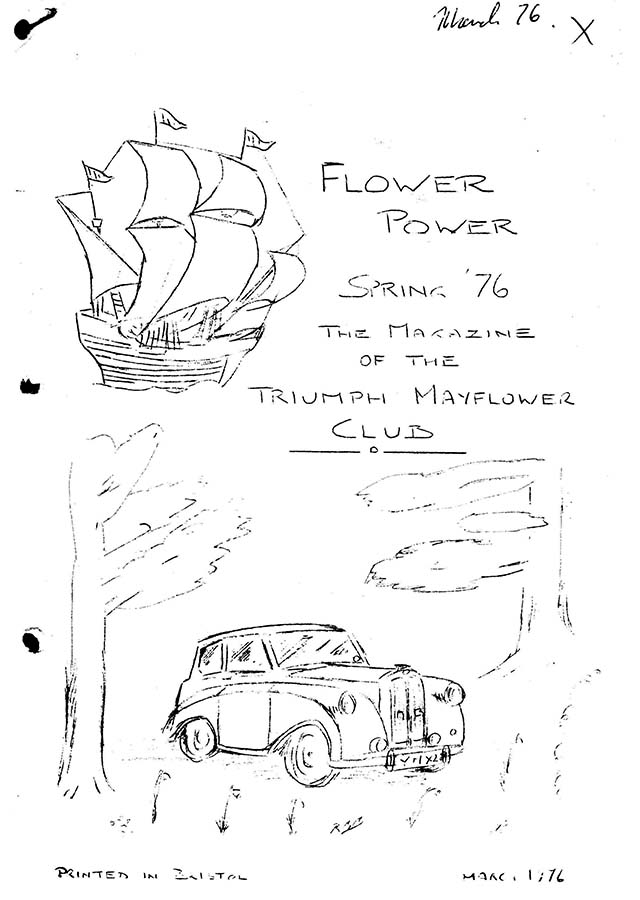 March 76. X
FLOWER
POWER
SPRING '76
THE MAGAZINE
OF THE
TRIUMPH MAYFLOWER
CLUB
PRINTED IN BRISTOL
MARC. 1;76